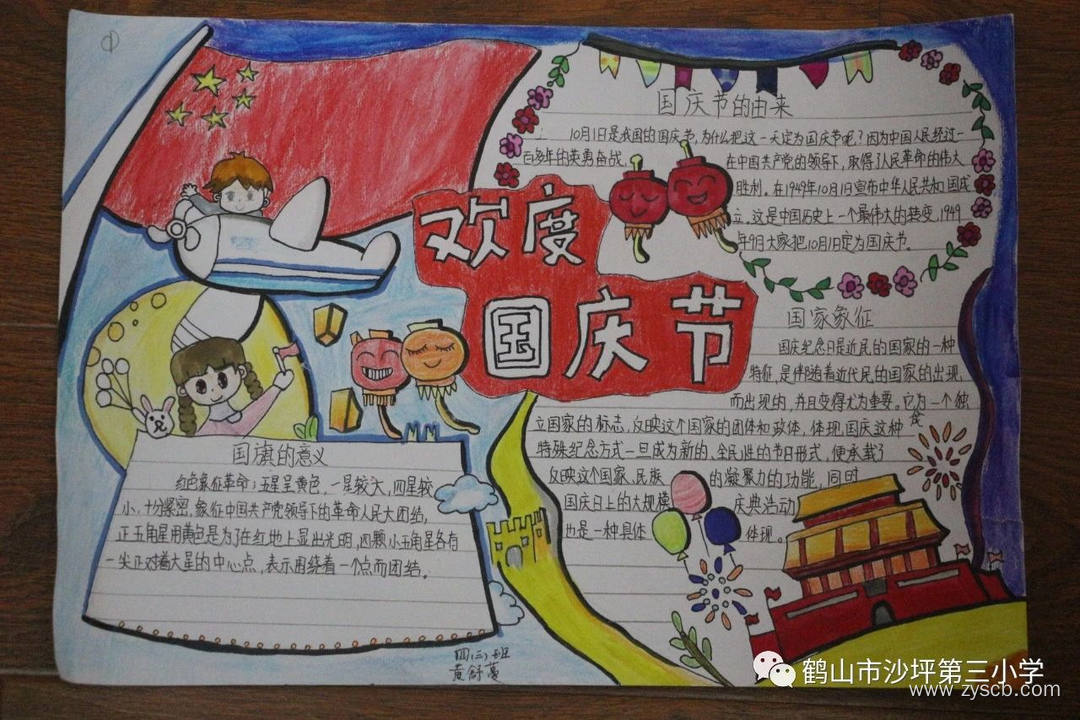 欢度
国庆节
国庆节的由来
10月1日是我国的国庆节,为什么把这一天定为国庆节呢?因为中国人民经过一
百多年的英勇奋战,在中国共产党的领导下,取得了人民革命的伟大
胜利。在1949年10月1日宣布中华人民共和国成
立。这是中国历史上一个最伟大的转变,1949
年9月大家把10月1日定为国庆节。
国家象征
国庆纪念日是近民的国家的一种
特征,是伴随着近代民的国家的出现,
而出现的,并且变得尤为重要。它为一个独
立国家的标志,反映这个国家的团体和政体,体现国庆这种
特殊纪念方式一旦成为新的、全民性的节日形式,便承载了
反映这个国家、民族的凝聚力的功能,同时
国庆日上的大规模庆典活动
也是一种具体体现。
国旗的意义
红色象征革命;五星呈黄色,一星较大,四星较
小,十分紧密,象征中国共产党领导下的革命人民大团结,
正五角星用黄色是为了在红地上显出光明,四颗小五角星各有
一尖正对着大星的中心点,表示围绕着一个点而团结。
四(三)班
黄舒蔓
鹤山市沙坪第三小学
www.zyscb.com